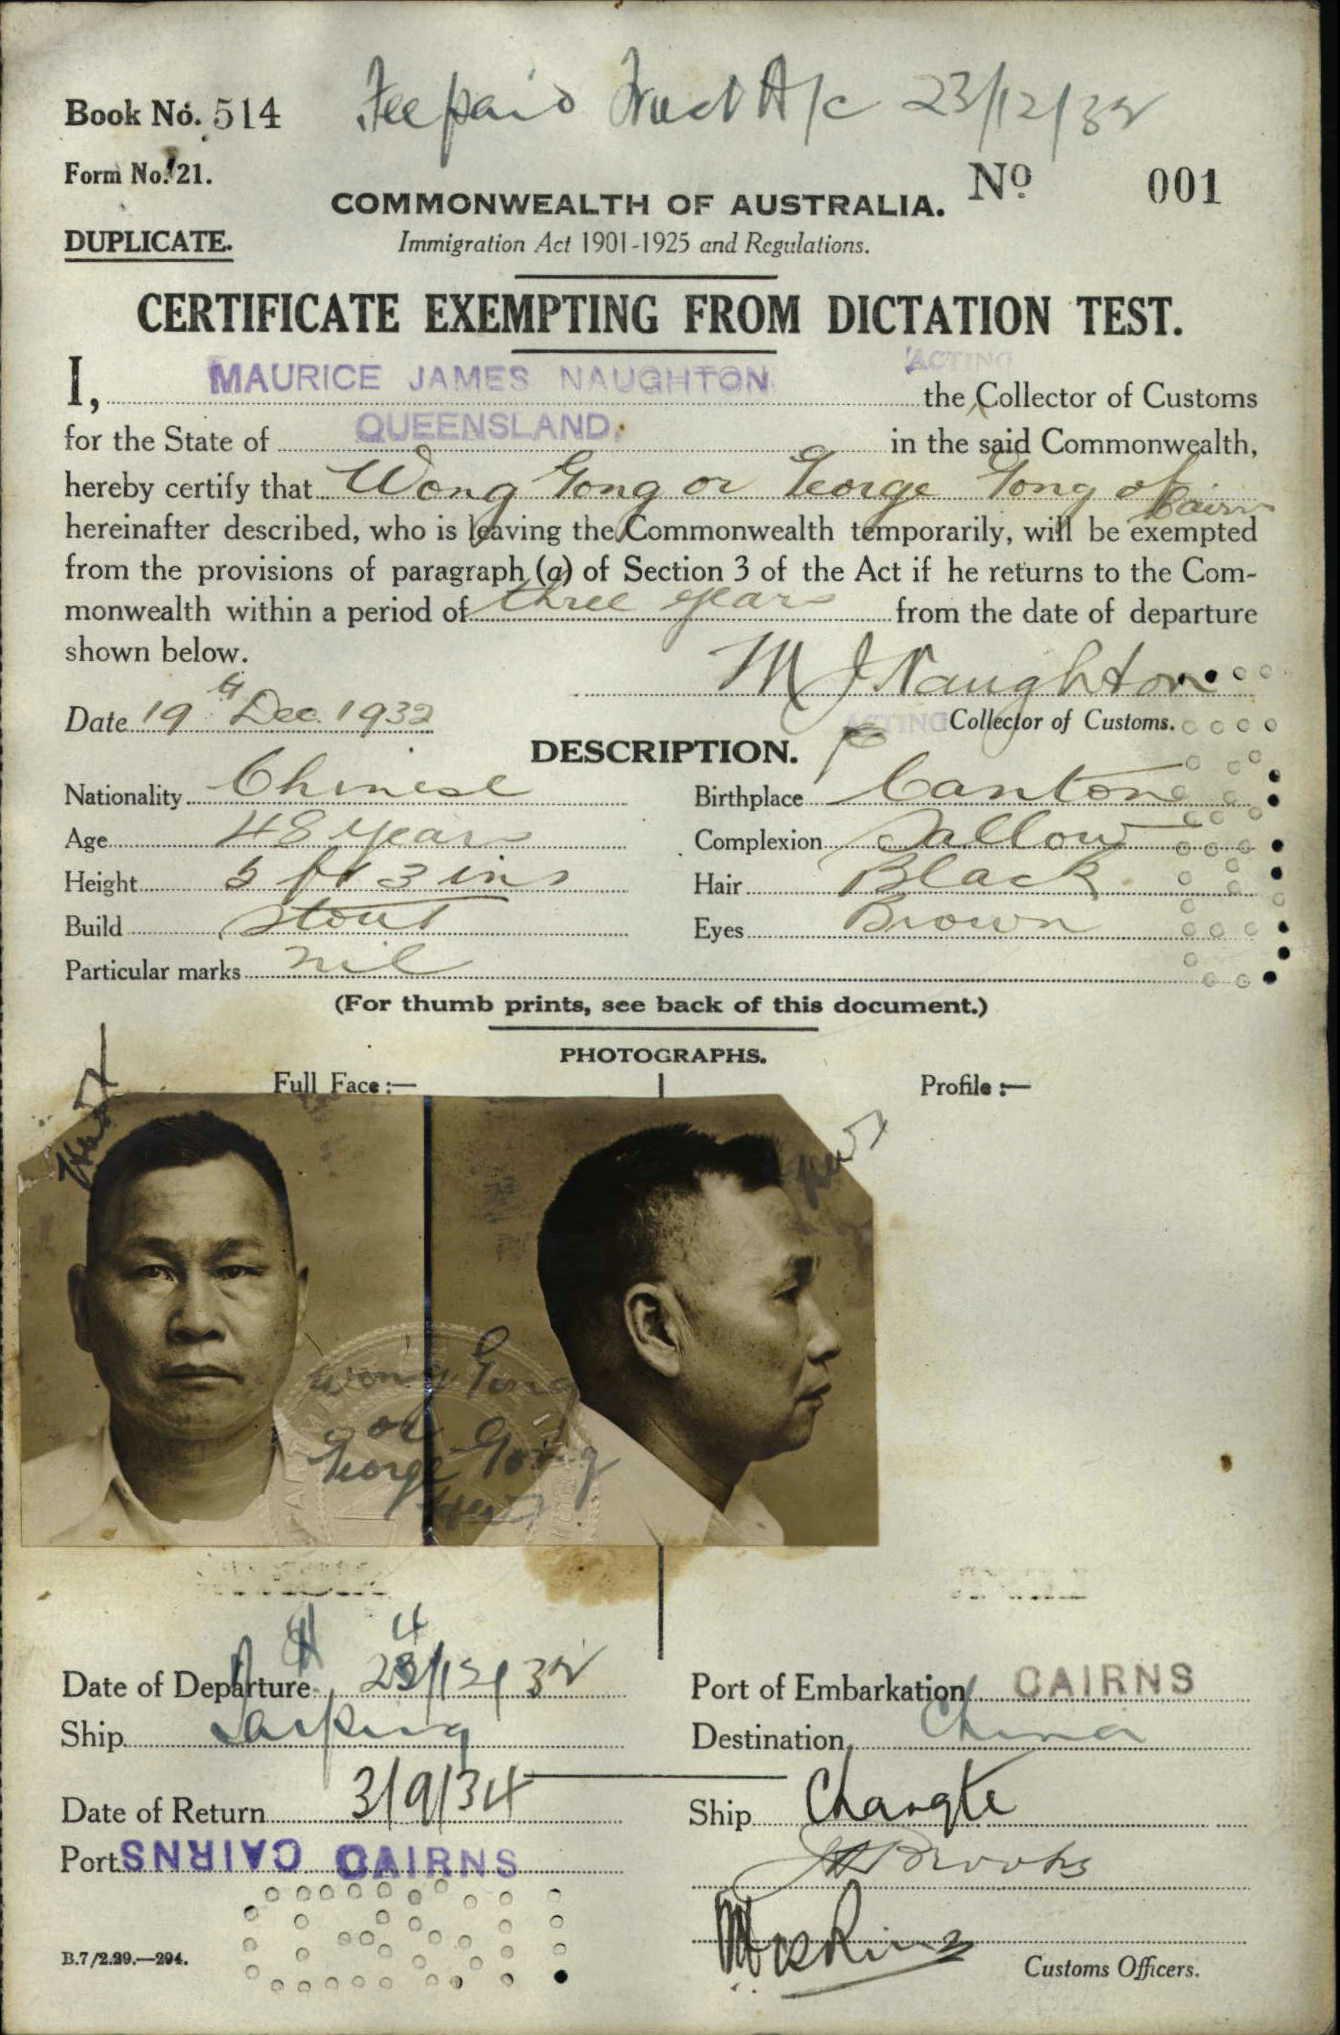 Feepaid Trust A/c 23/12/32
Book No. 514
Form No. 21.
No 001
COMMONWEALTH OF AUSTRALIA.
DUPLICATE.
Immigration Act 1901-1925 and Regulations.
CERTIFICATE EXEMPTING FROM DICTATION TEST.
ACTING
I, MAURICE JAMES NAUGHTON the Collector of Customs
for the State of QUEENSLAND. in the said Commonwealth,
hereby certify that Wong Gong or George Gong of Cairns
hereinafter described, who is leaving the Commonwealth temporarily, will be exempted
from the provisions of paragraph (a) of Section 3 of the Act if he returns to the Com-
monwealth within a period of three years from the date of departure
shown below.
M J Naughton
Date 19th Dec. 1932
ACTING Collector of Customs.
DESCRIPTION.
Nationality Chinese Birthplace Canton
Age 48 years Complexion Sallow
Height 5 ft 3 ins Hair Black
Build Stout Eyes Brown
Particular marks nil
(For thumb prints, see back of this document.)
PHOTOGRAPHS.
Full Face :— Profile :—
Wong Gong
or
George Gong
Date of Departure 24/12/32 Port of Embarkation CAIRNS
Ship Taiping Destination China
Date of Return 3/9/34 Ship Changte
Port CAIRNS CAIRNS
Brooks
Hoskins
B.7/2.29.—294.
Customs Officers.